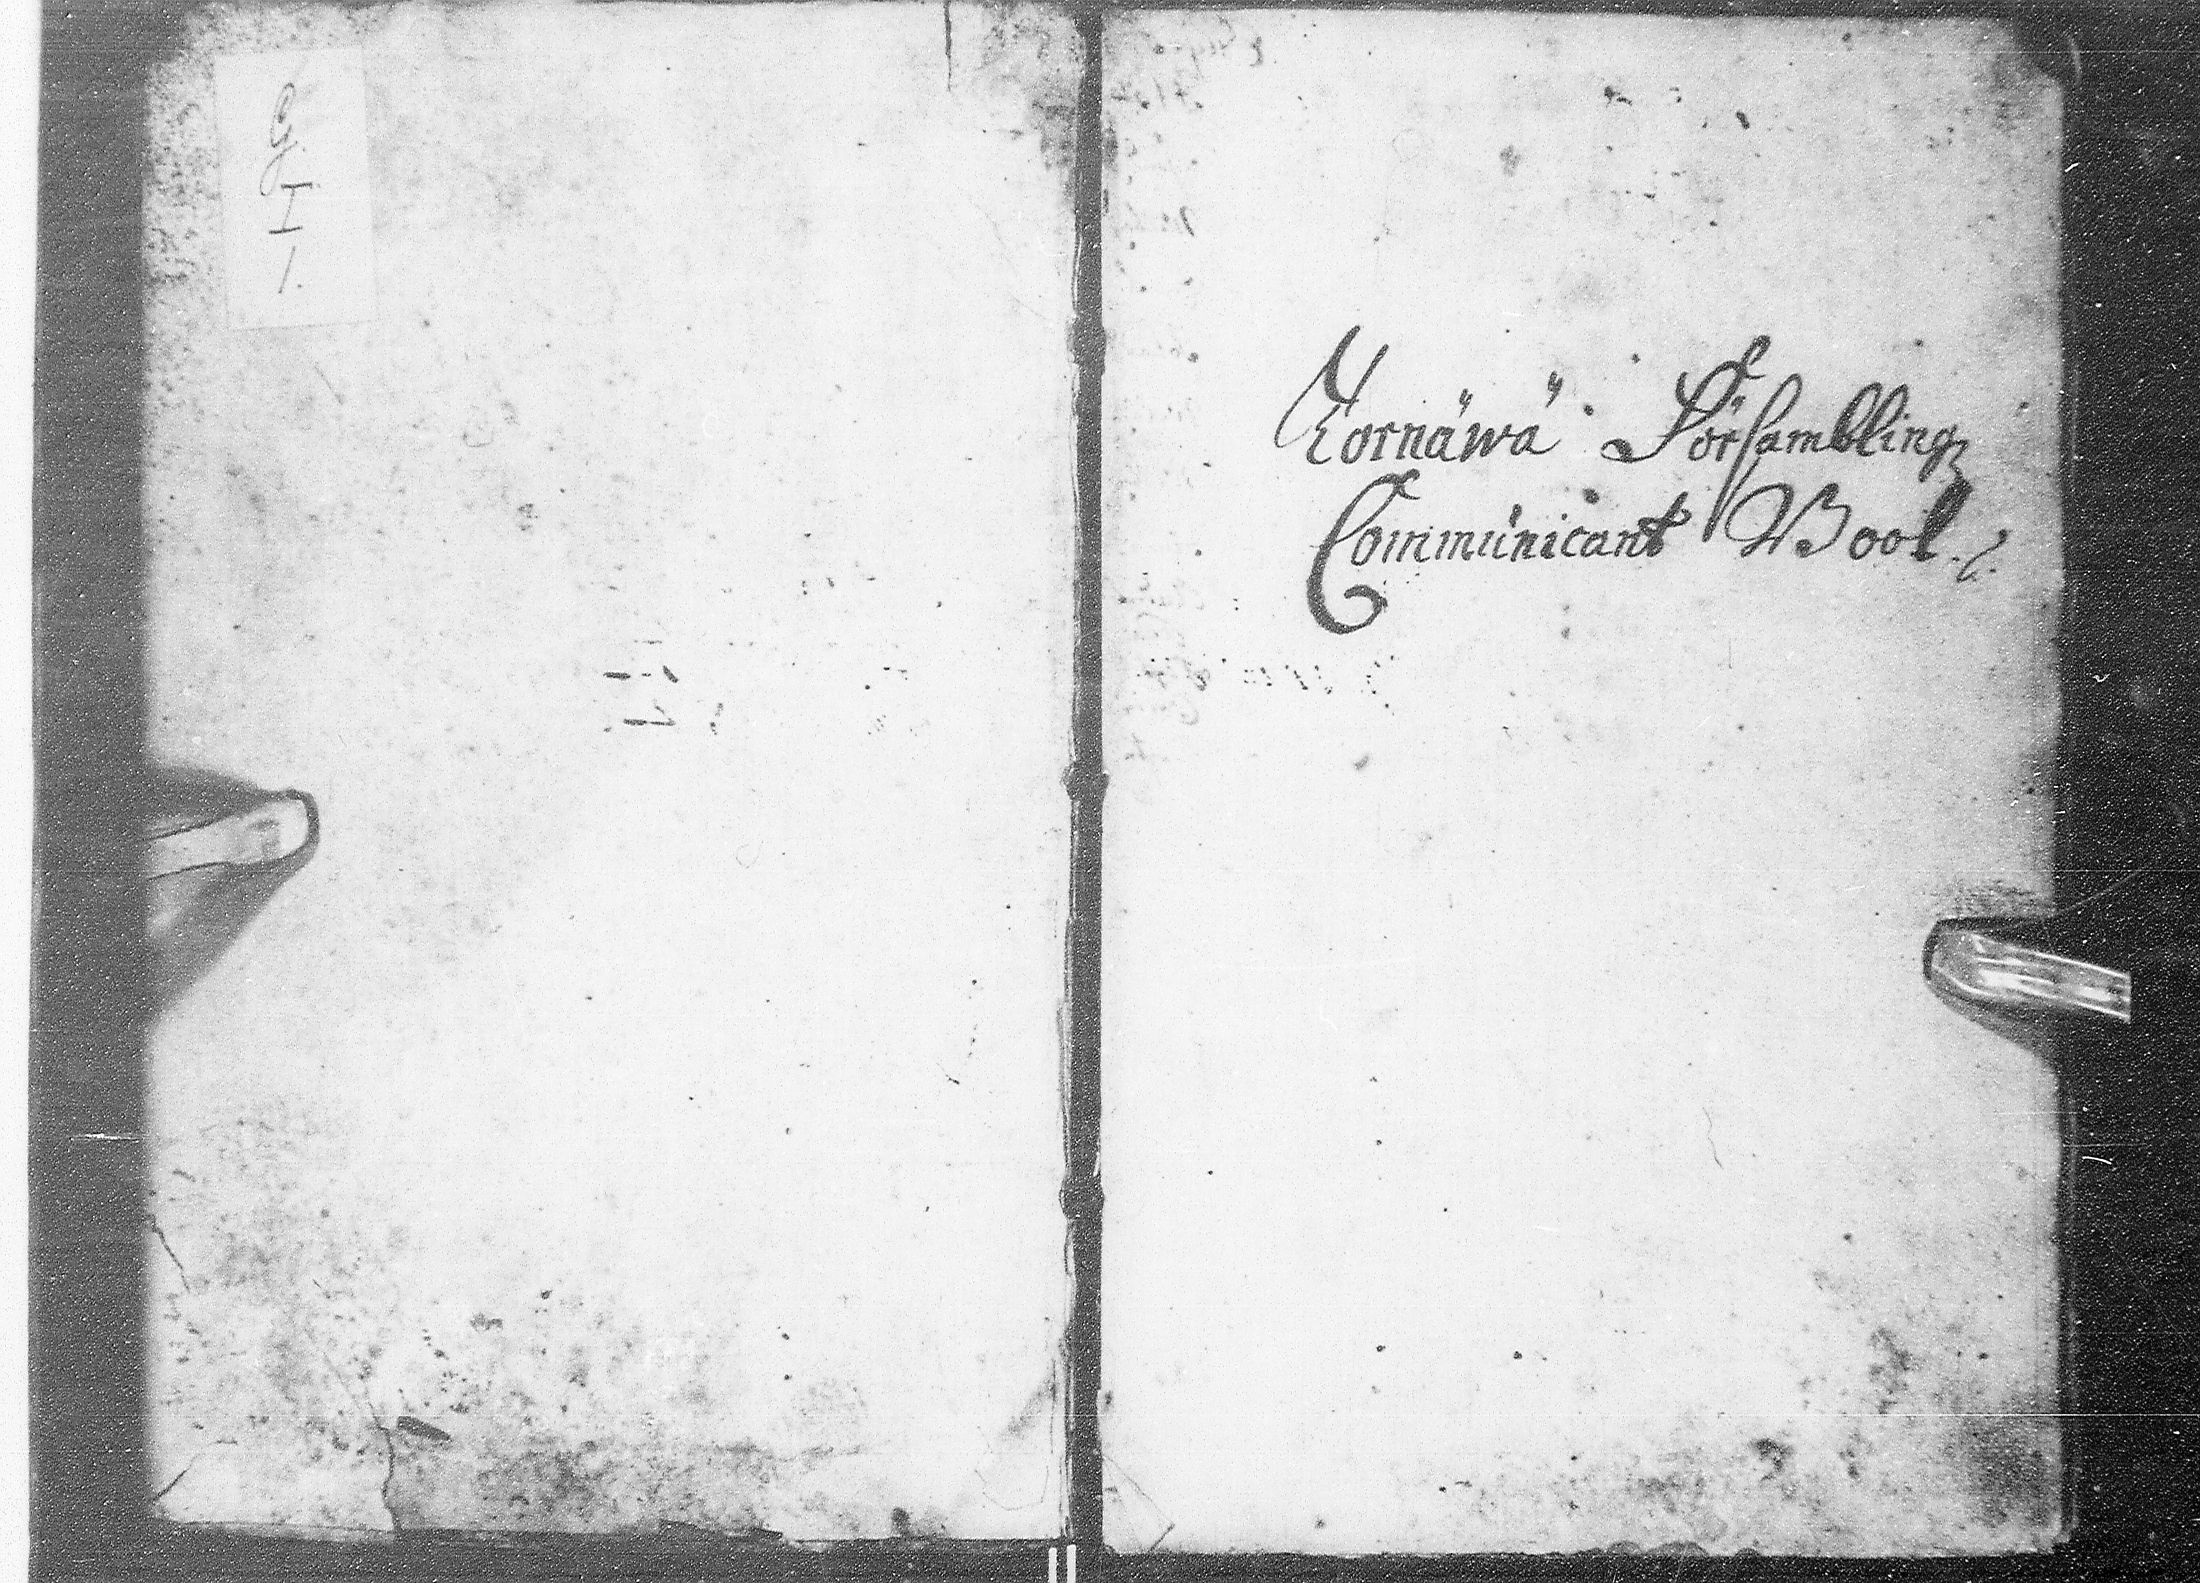 G.
I
1.
Tornäwä Försambling
Communicant Book.